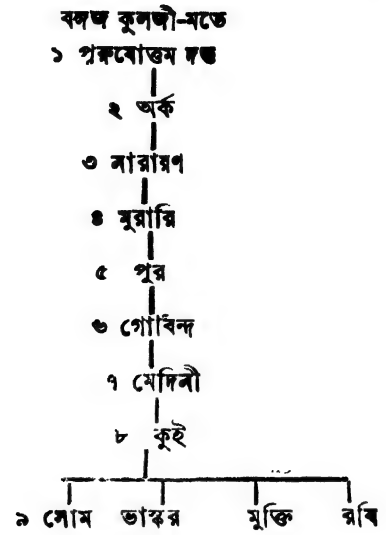 বঙ্গজ কুলজী-মতে
১ পুরুষোত্তম দত্ত
২ অর্ক
৩ নারায়ণ
৪ মুরারি
৫ পুর
৬ গোবিন্দ
৭ মেদিনী
৮ কুই
৯ সোম ভাস্কর মুক্তি রবি